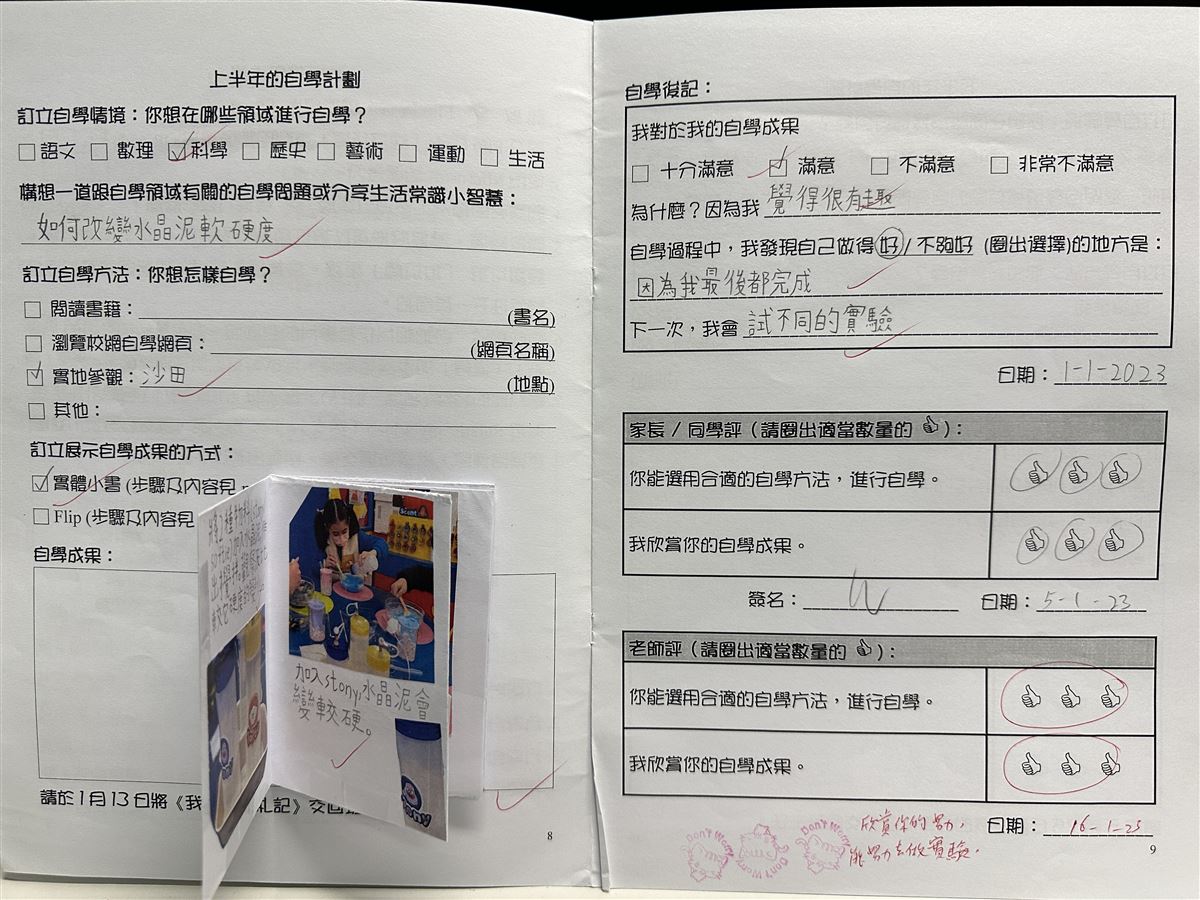 上半年的自學計劃
訂立自學情境：你想在哪些領域進行自學？
□語文 □數理 ☑科學 □歷史 □藝術 □運動 □生活
構想一道跟自學領域有關的自學問題或分享生活常識小智慧：
如何改變水晶泥軟硬度
訂立自學方法：你想怎樣自學？
□ 閱讀書籍： (書名)
□ 瀏覽校網自學網頁： (網頁名稱)
☑ 實地參觀：沙田 (地點)
□ 其他：
訂立展示自學成果的方式：
☑實體小書 (步驟及內容見
□Flip (步驟及內容見
自學成果：
加入stony,水晶泥會
變軟硬。
請於1月13日將《我 札記》交回
8
自學後記：
我對於我的自學成果
□ 十分滿意 ☑ 滿意 □ 不滿意 □ 非常不滿意
為什麼？因為我 覺得很有趣
自學過程中，我發現自己做得好/不夠好 (圈出選擇)的地方是：
因為我最後都完成
下一次，我會 試不同的實驗
日期：1-1-2023
家長 / 同學評（請圈出適當數量的 👍）：
你能選用合適的自學方法，進行自學。 👍 👍 👍
我欣賞你的自學成果。 👍 👍 👍
簽名： 日期：5-1-23
老師評（請圈出適當數量的 👍）：
你能選用合適的自學方法，進行自學。 👍 👍 👍
我欣賞你的自學成果。 👍 👍 👍
欣賞你的努力， 日期：16-1-23
能努力去做實驗。
Don't Worry Don't Worry Don't Worry
9